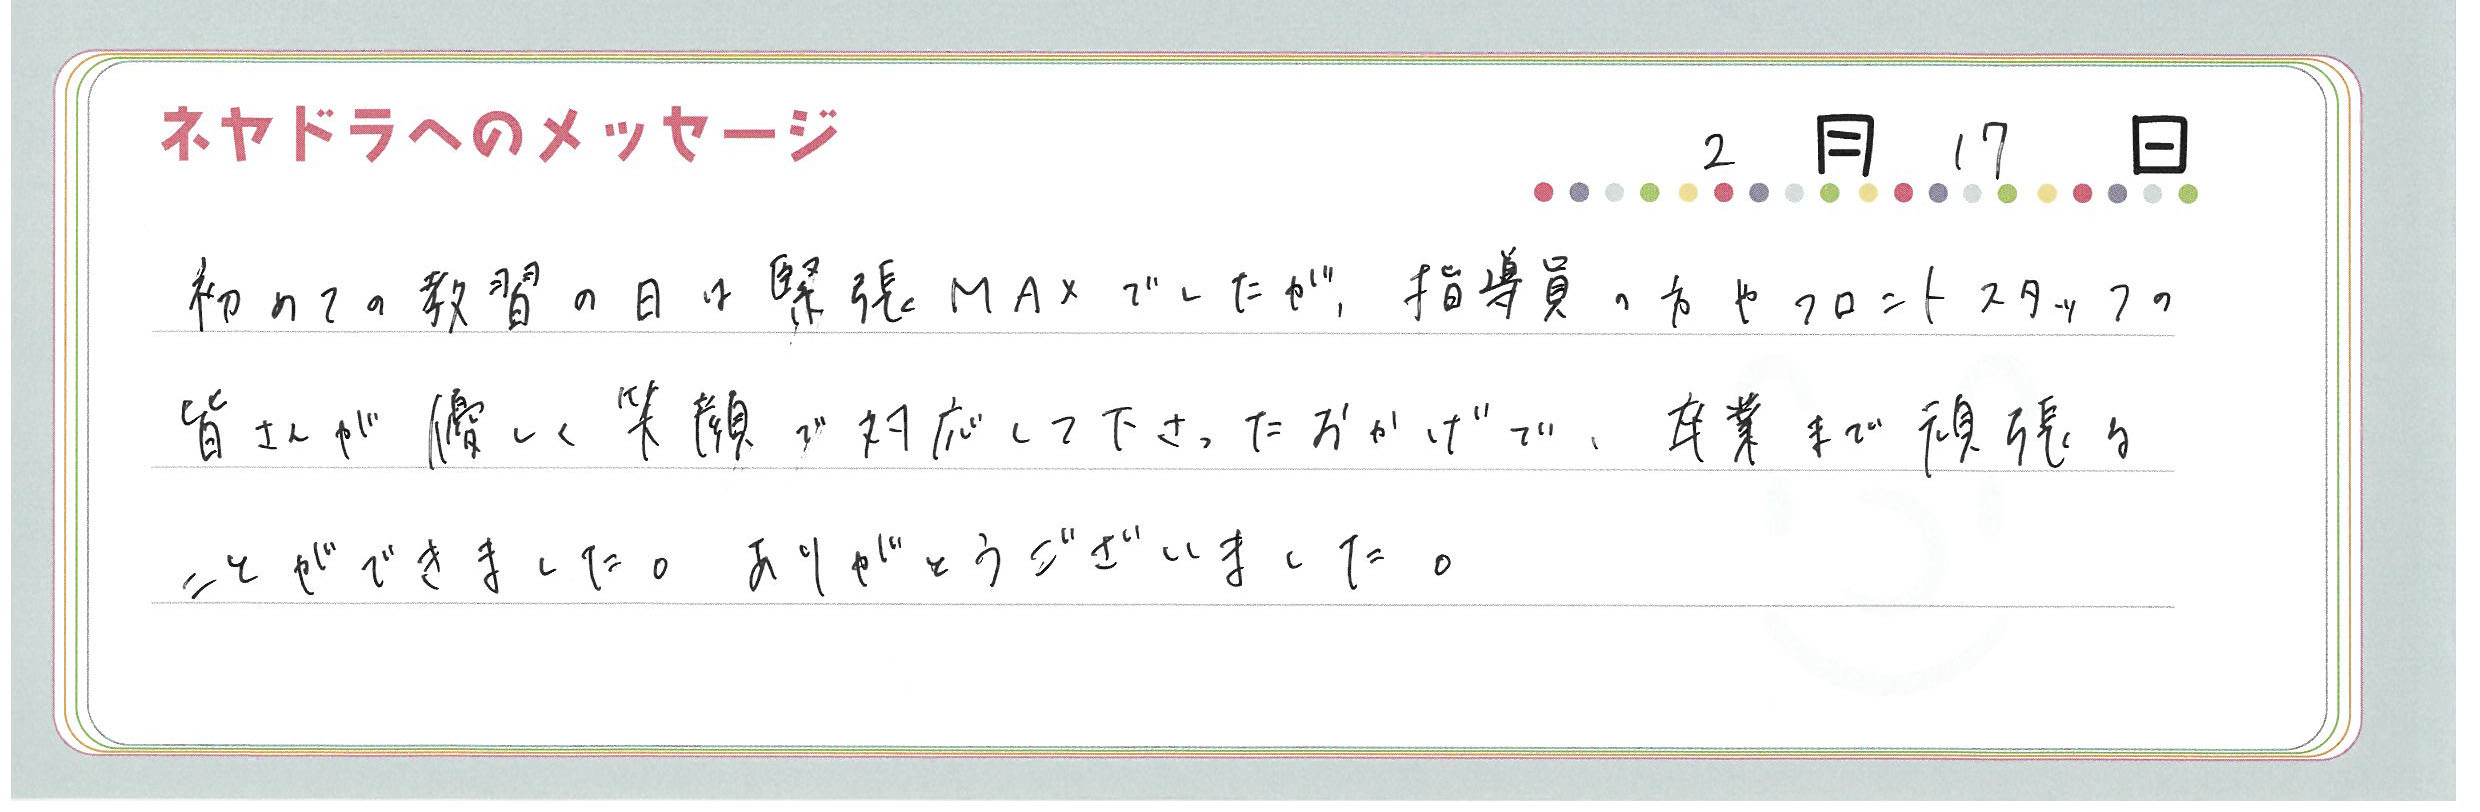 ネヤドラへのメッセージ
2月17日
初めての教習の日は緊張MAXでしたが、指導員の方やフロントスタッフの
皆さんが優しく笑顔で対応して下さったおかげで、卒業まで頑張る
ことができました。ありがとうございました。